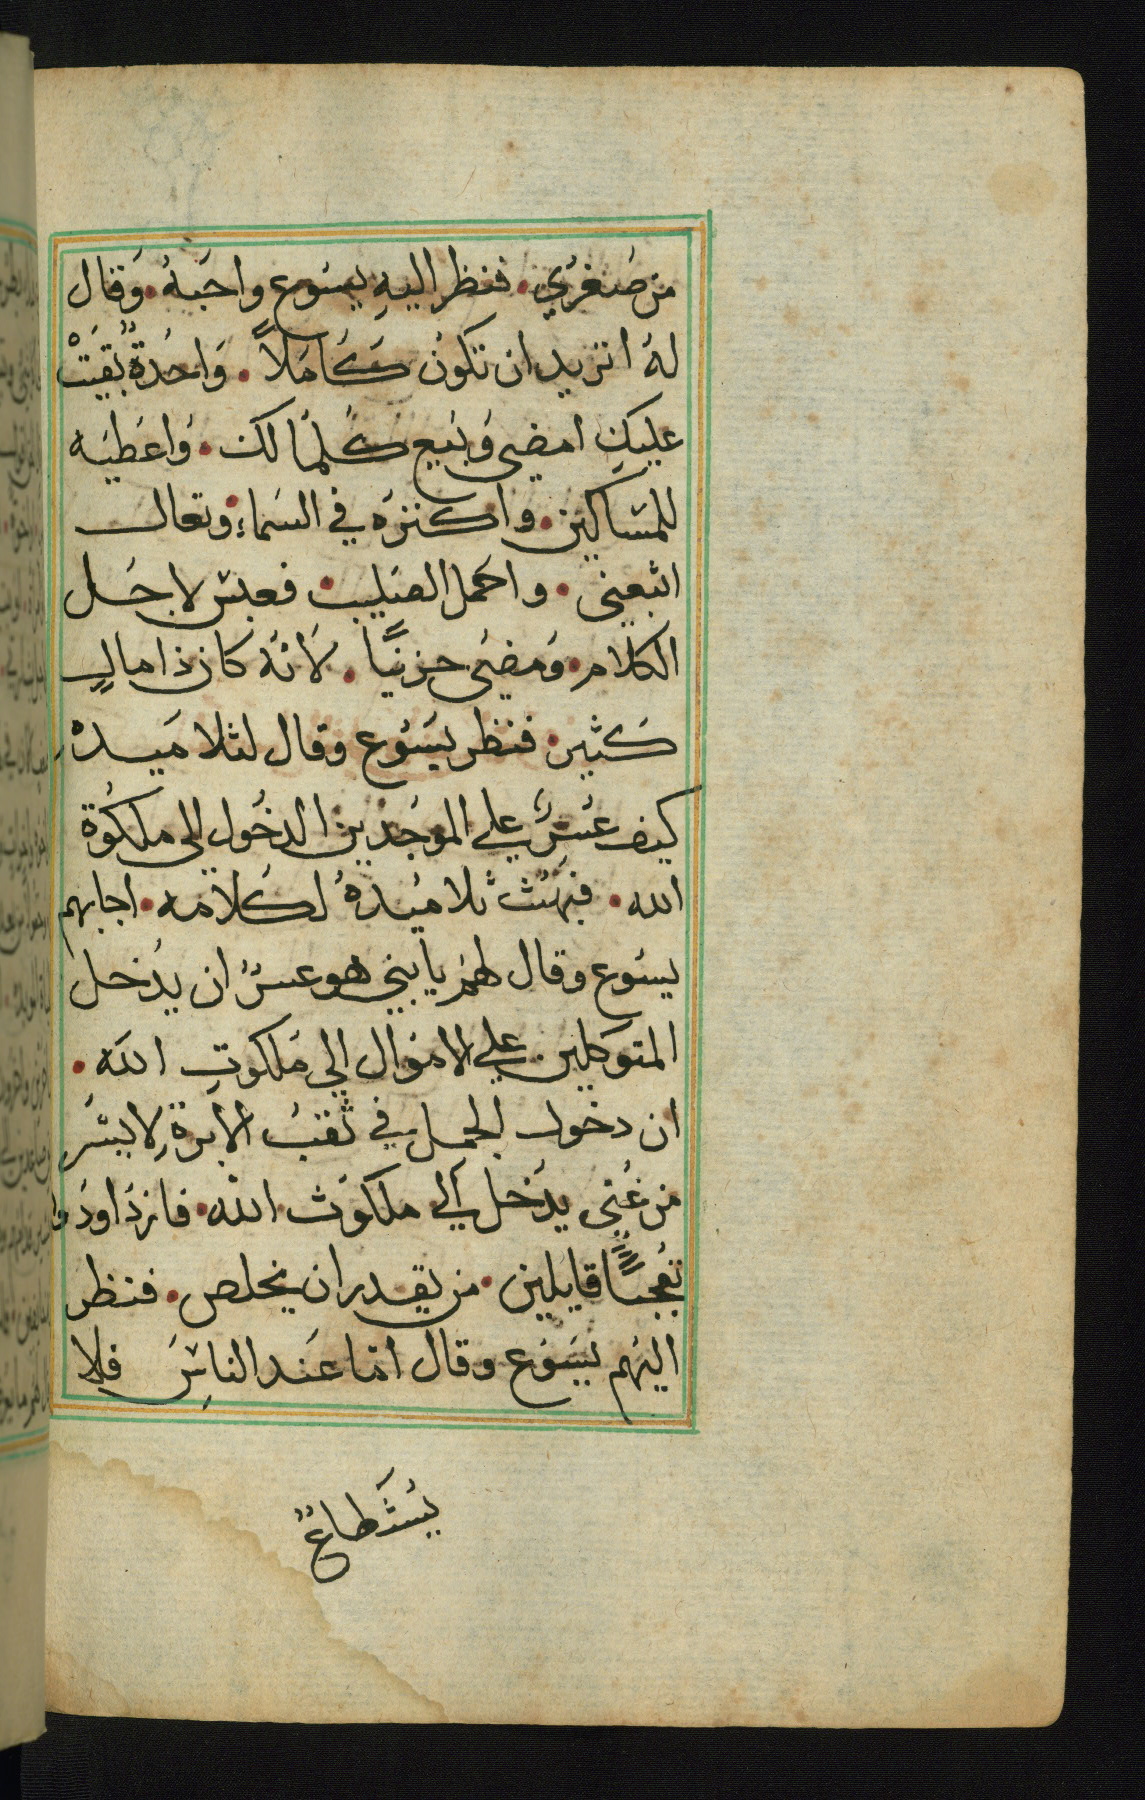 من صغري. فنظر اليهِ يسوع واحبهُ. وَقال
لهُ اتريد ان تكون كَاملاً. وَاحدةٌ بقيَتْ
عليكِ امضي وَبيع كُلمَا لك. وَاعطيَه
للمساكين. واكنزه في السَماءِ. وتعال
اتبعني. واحمل الصليب. فعبسَ لاجل
الكلام. وَمضي حزنيًا. لَانهُ كان ذا مالٍ
كَثير. فنظر يسَوع وقال لتلاميدهْ.
كيف عسرٌ علي الموجدين الدخُول الي ملكوة
الله. فبهُت تلاميدهُ لكَلامه. اجابهم
يسوع وقال لهمْ يابني هو عسرٌ ان يدُخل
المتوكلين علي الاموَال الي مَلكوتِ الله.
ان دخول الجمل في ثقبُ الابرة لايسَر
من غُني يدَخل الي ملكوَت الله. فازدَاودَوا
تعُجبًا قايلين. من يقدر ان يخلص. فنظر
اليَهم يسَوع وقال امَا عنَد الناسِ فلا
يُستَطاعٌ